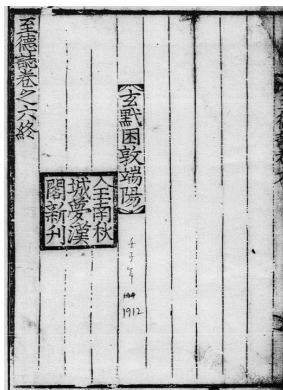 【玄黓困敦端陽】
壬子年
1912
全南秋
城夢漢
閣新刊
至德誌卷之六終